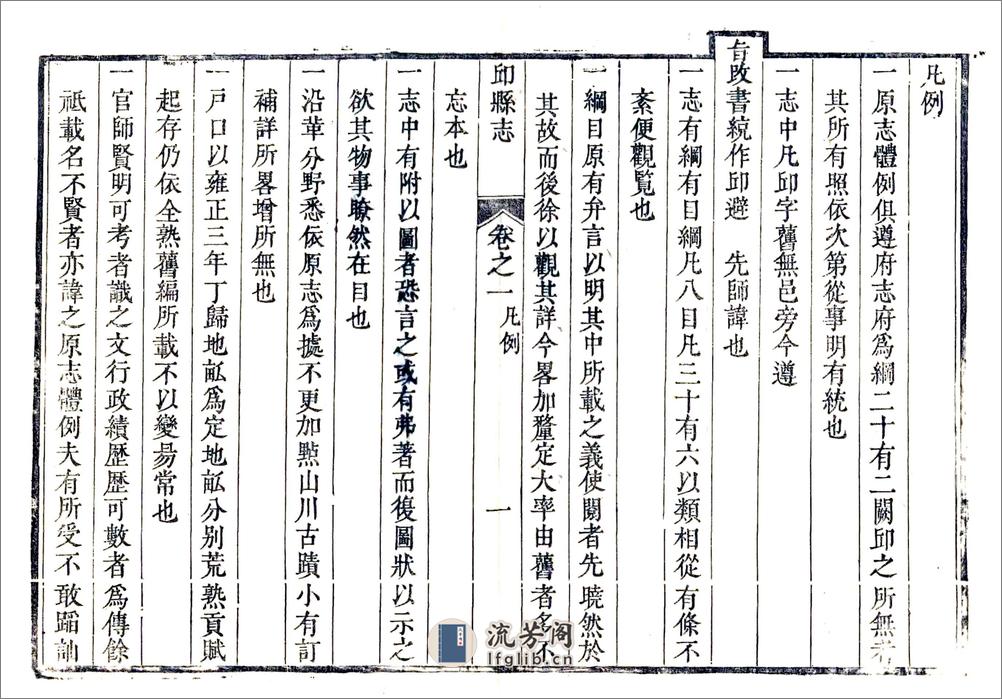 凡例
一原志體例俱遵府志府爲綱二十有二闕邱之所無者
其所有照依次第從事明有統也
一志中凡邱字舊無邑旁今遵
旨改書統作邱避 先師諱也
一志有綱有目綱凡八目凡三十有六以類相從有條不
紊便觀覽也
一綱目原有弁言以明其中所載之義使閱者先曉然於
其故而後徐以觀其詳今畧加釐定大率由舊者多不
邱縣志 卷之一 凡例 一
忘本也
一志中有附以圖者恐言之或有弗著而復圖狀以示之
欲其物事瞭然在目也
一沿革分野悉依原志爲據不更加㸃山川古蹟小有訂
補詳所畧增所無也
一戸口以雍正三年丁歸地畝爲定地畝分别荒熟貢賦
起存仍依全熟舊編所載不以變易常也
一官師賢明可考者識之文行政績歷歷可數者爲傳餘
祗載名不賢者亦諱之原志體例夫有所受不敢蹈訕
流芳阁
lfglib.cn